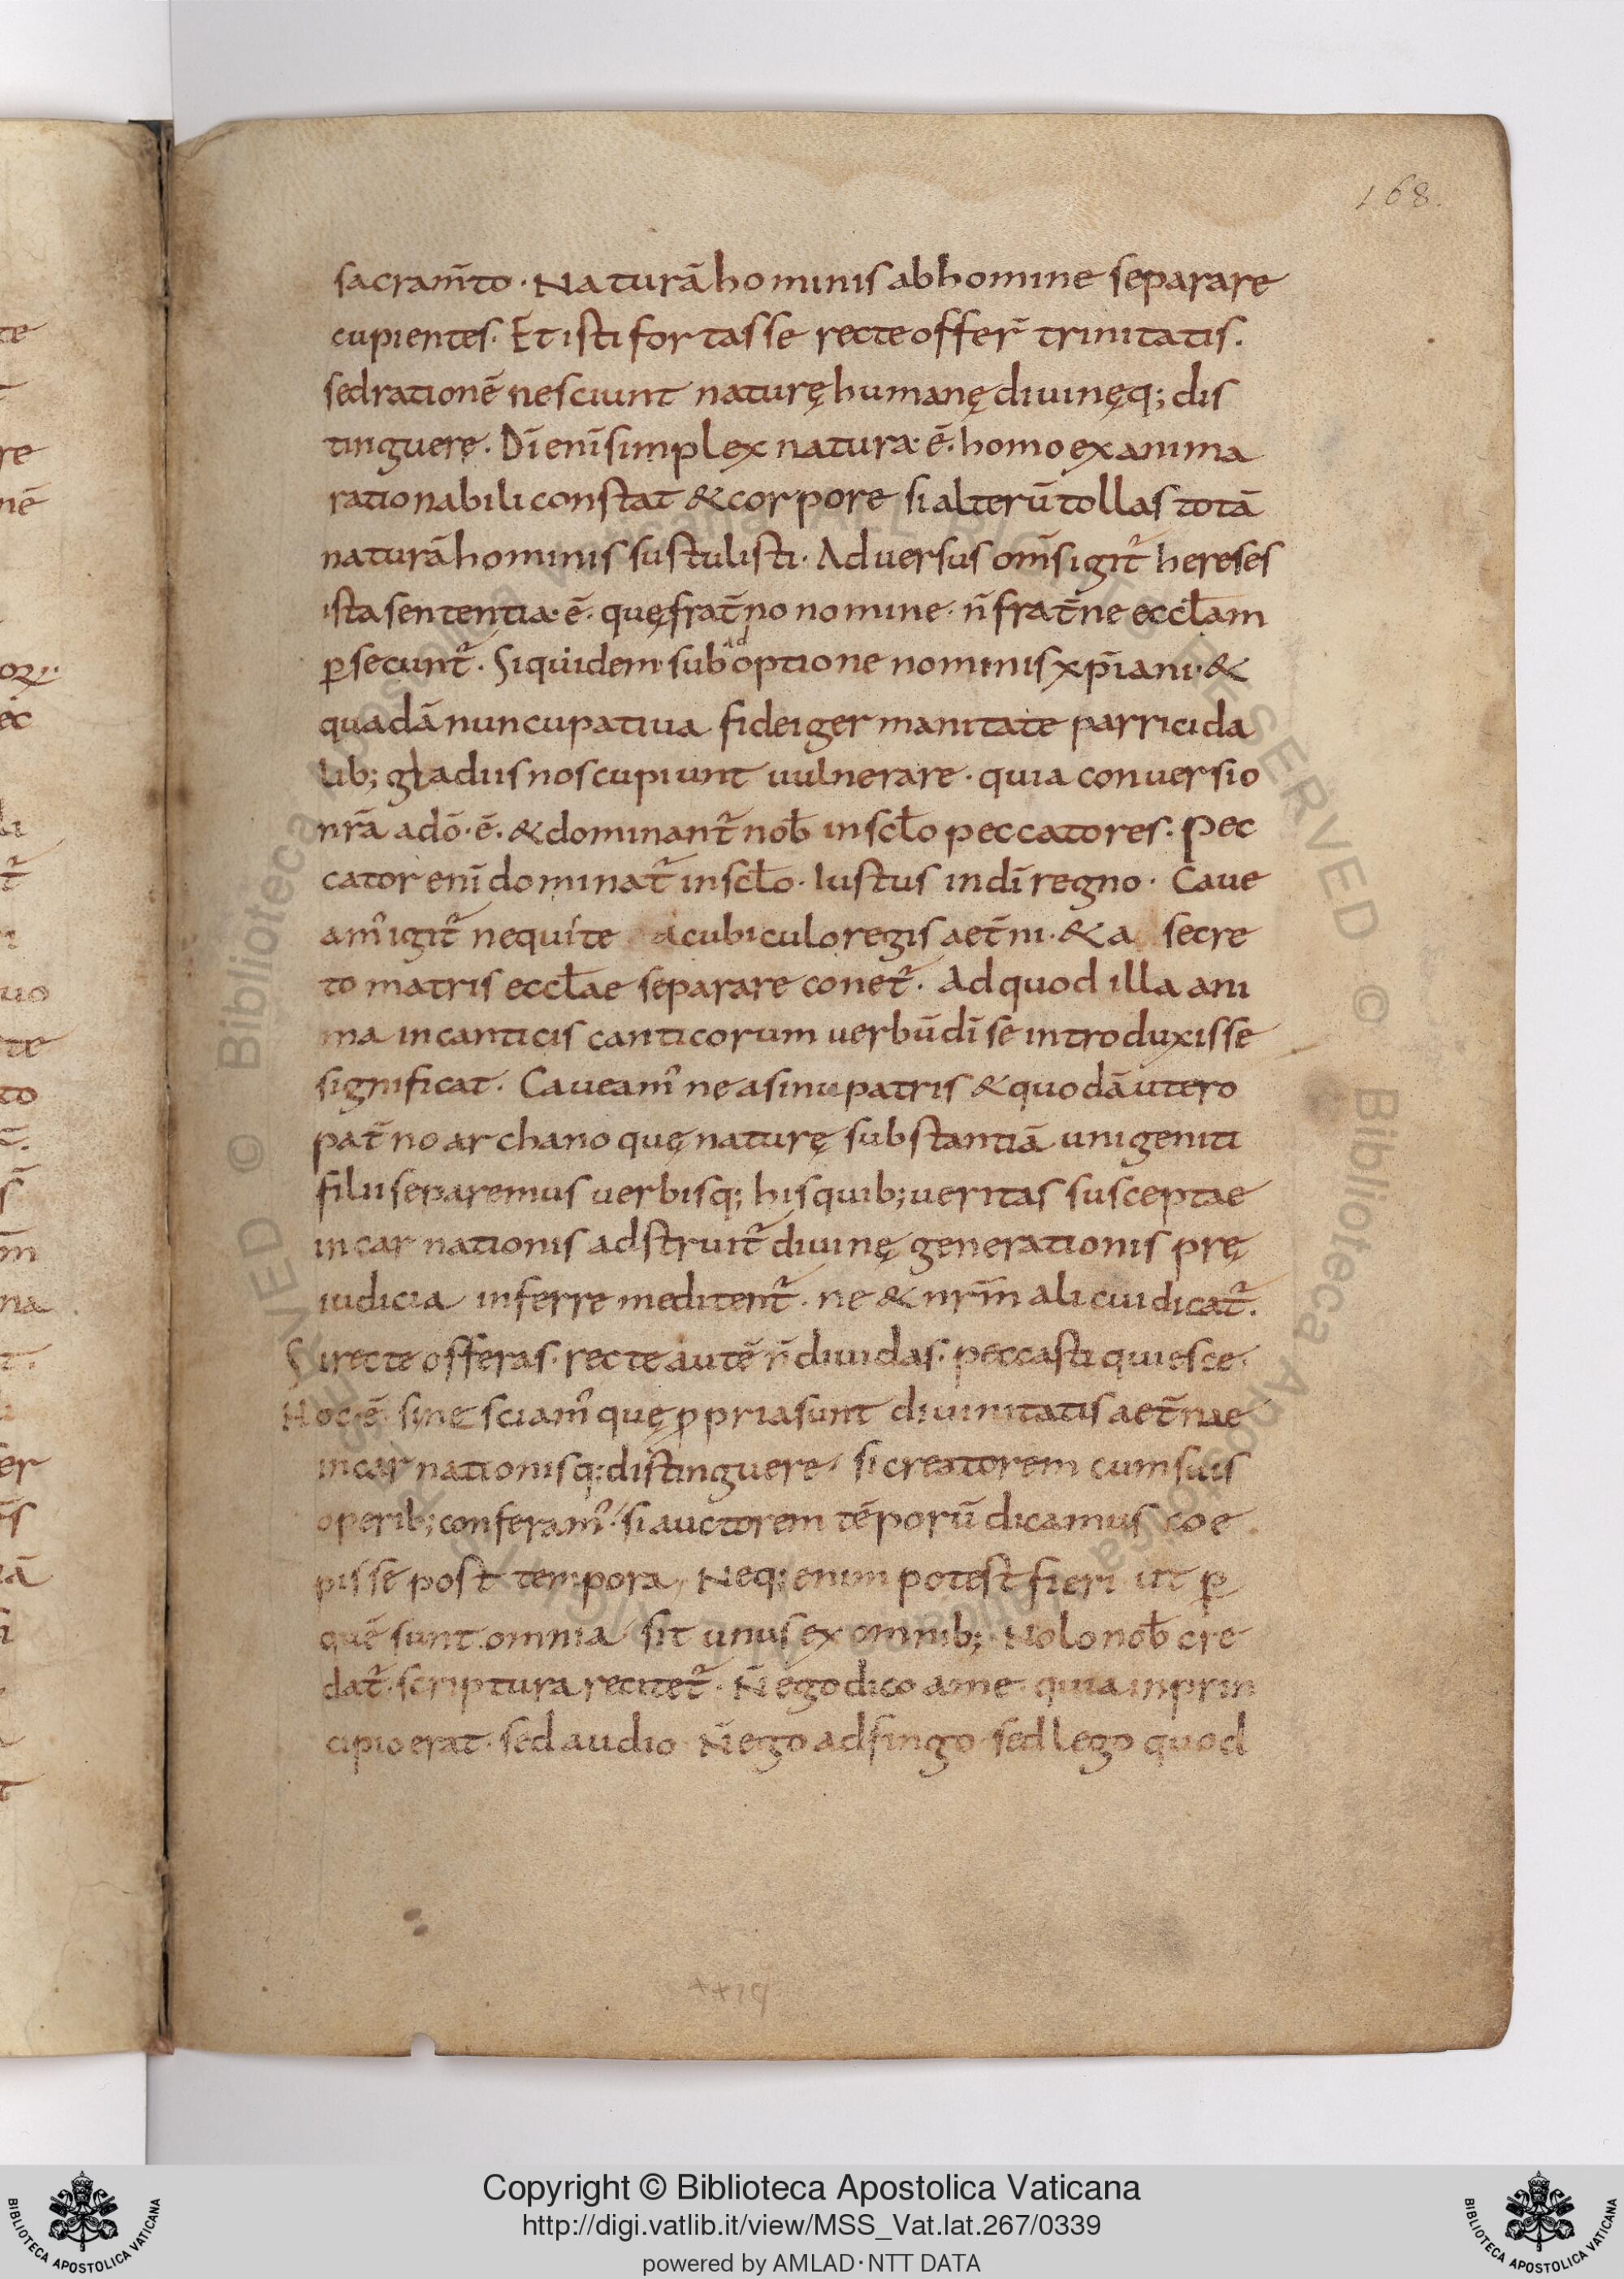 168.
sacram̄to · Naturā hominis ab homine separare
cupientes. Et isti fortasse recte offer̄ trinitatis.
sed rationē nesciunt naturę humanę diuinęq; dis
tinguere. Dī enī simplex natura· ē· homo ex anima
rationabili constat & corpore si alterū tollas totā
naturā hominis sustulisti. Aduersus om̄s igit̄ hereses
ista sententia· ē· quę frat̄no nomine· n̄ frat̄ne eccl̄am
p̱secunt̄. Siquidem sub adoptione nominis xp̄iani· &
quadā nuncupatiua fidei germanitate parricida
lib; gladiis nos cupiunt uulnerare · quia conuersio
nr̄a ad dō· ē· & dominant̄ nob̄ in scl̄o peccatores. Pec
cator enī dominat̄ in scl̄o· Iustus in dī regno· Caue
am' igit̄ ne quis te a cubiculo regis aet̄ni· & a secre
to matris eccl̄ae separare conet̄. Ad quod illa ani
ma in canticis canticorum uerbū dī se introduxisse
significat. Caueam' ne a sinu patris & quodā utero
pat̄no archano quę naturę substantiā unigeniti
filii separemus uerbisq; his quib; ueritas susceptae
incarnationis adstruit̄ diuinę generationis prę
iudicia inferre meditent̄. ne & nr̄m alicui dicat̄.
Si recte offeras· recte autē n̄ diuidas. peccasti quiesce.
Hoc ē· si nesciam' quę p̱pria sunt diuinitatis aet̄nae
incarnationisq; distinguere/ si creatorem cum suis
operib; conferam'/ si auctorem tēporū dicamus coe
pisse post tempora, Neq; enim potest fieri ut p̱
quē sunt omnia sit unus ex omnib; Nolo nob̄ cre
dat̄· scriptura recitet̄. N̄ ego dico a me· quia in prin
cipio erat· sed audio N̄ ego adfingo sed lego quod
Copyright © Biblioteca Apostolica Vaticana
http://digi.vatlib.it/view/MSS_Vat.lat.267/0339
powered by AMLAD·NTT DATA
BIBLIOTECA APOSTOLICA VATICANA
BIBLIOTECA APOSTOLICA VATICANA